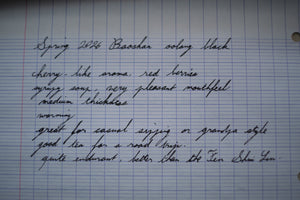 Spring 2026 Baoshan oolong black
cherry-like aroma, red berries
syrupy soup, very pleasant mouthfeel
medium thickness
warming
great for casual sipping or grandpa style
good tea for a road trip.
quite endurant, better than the